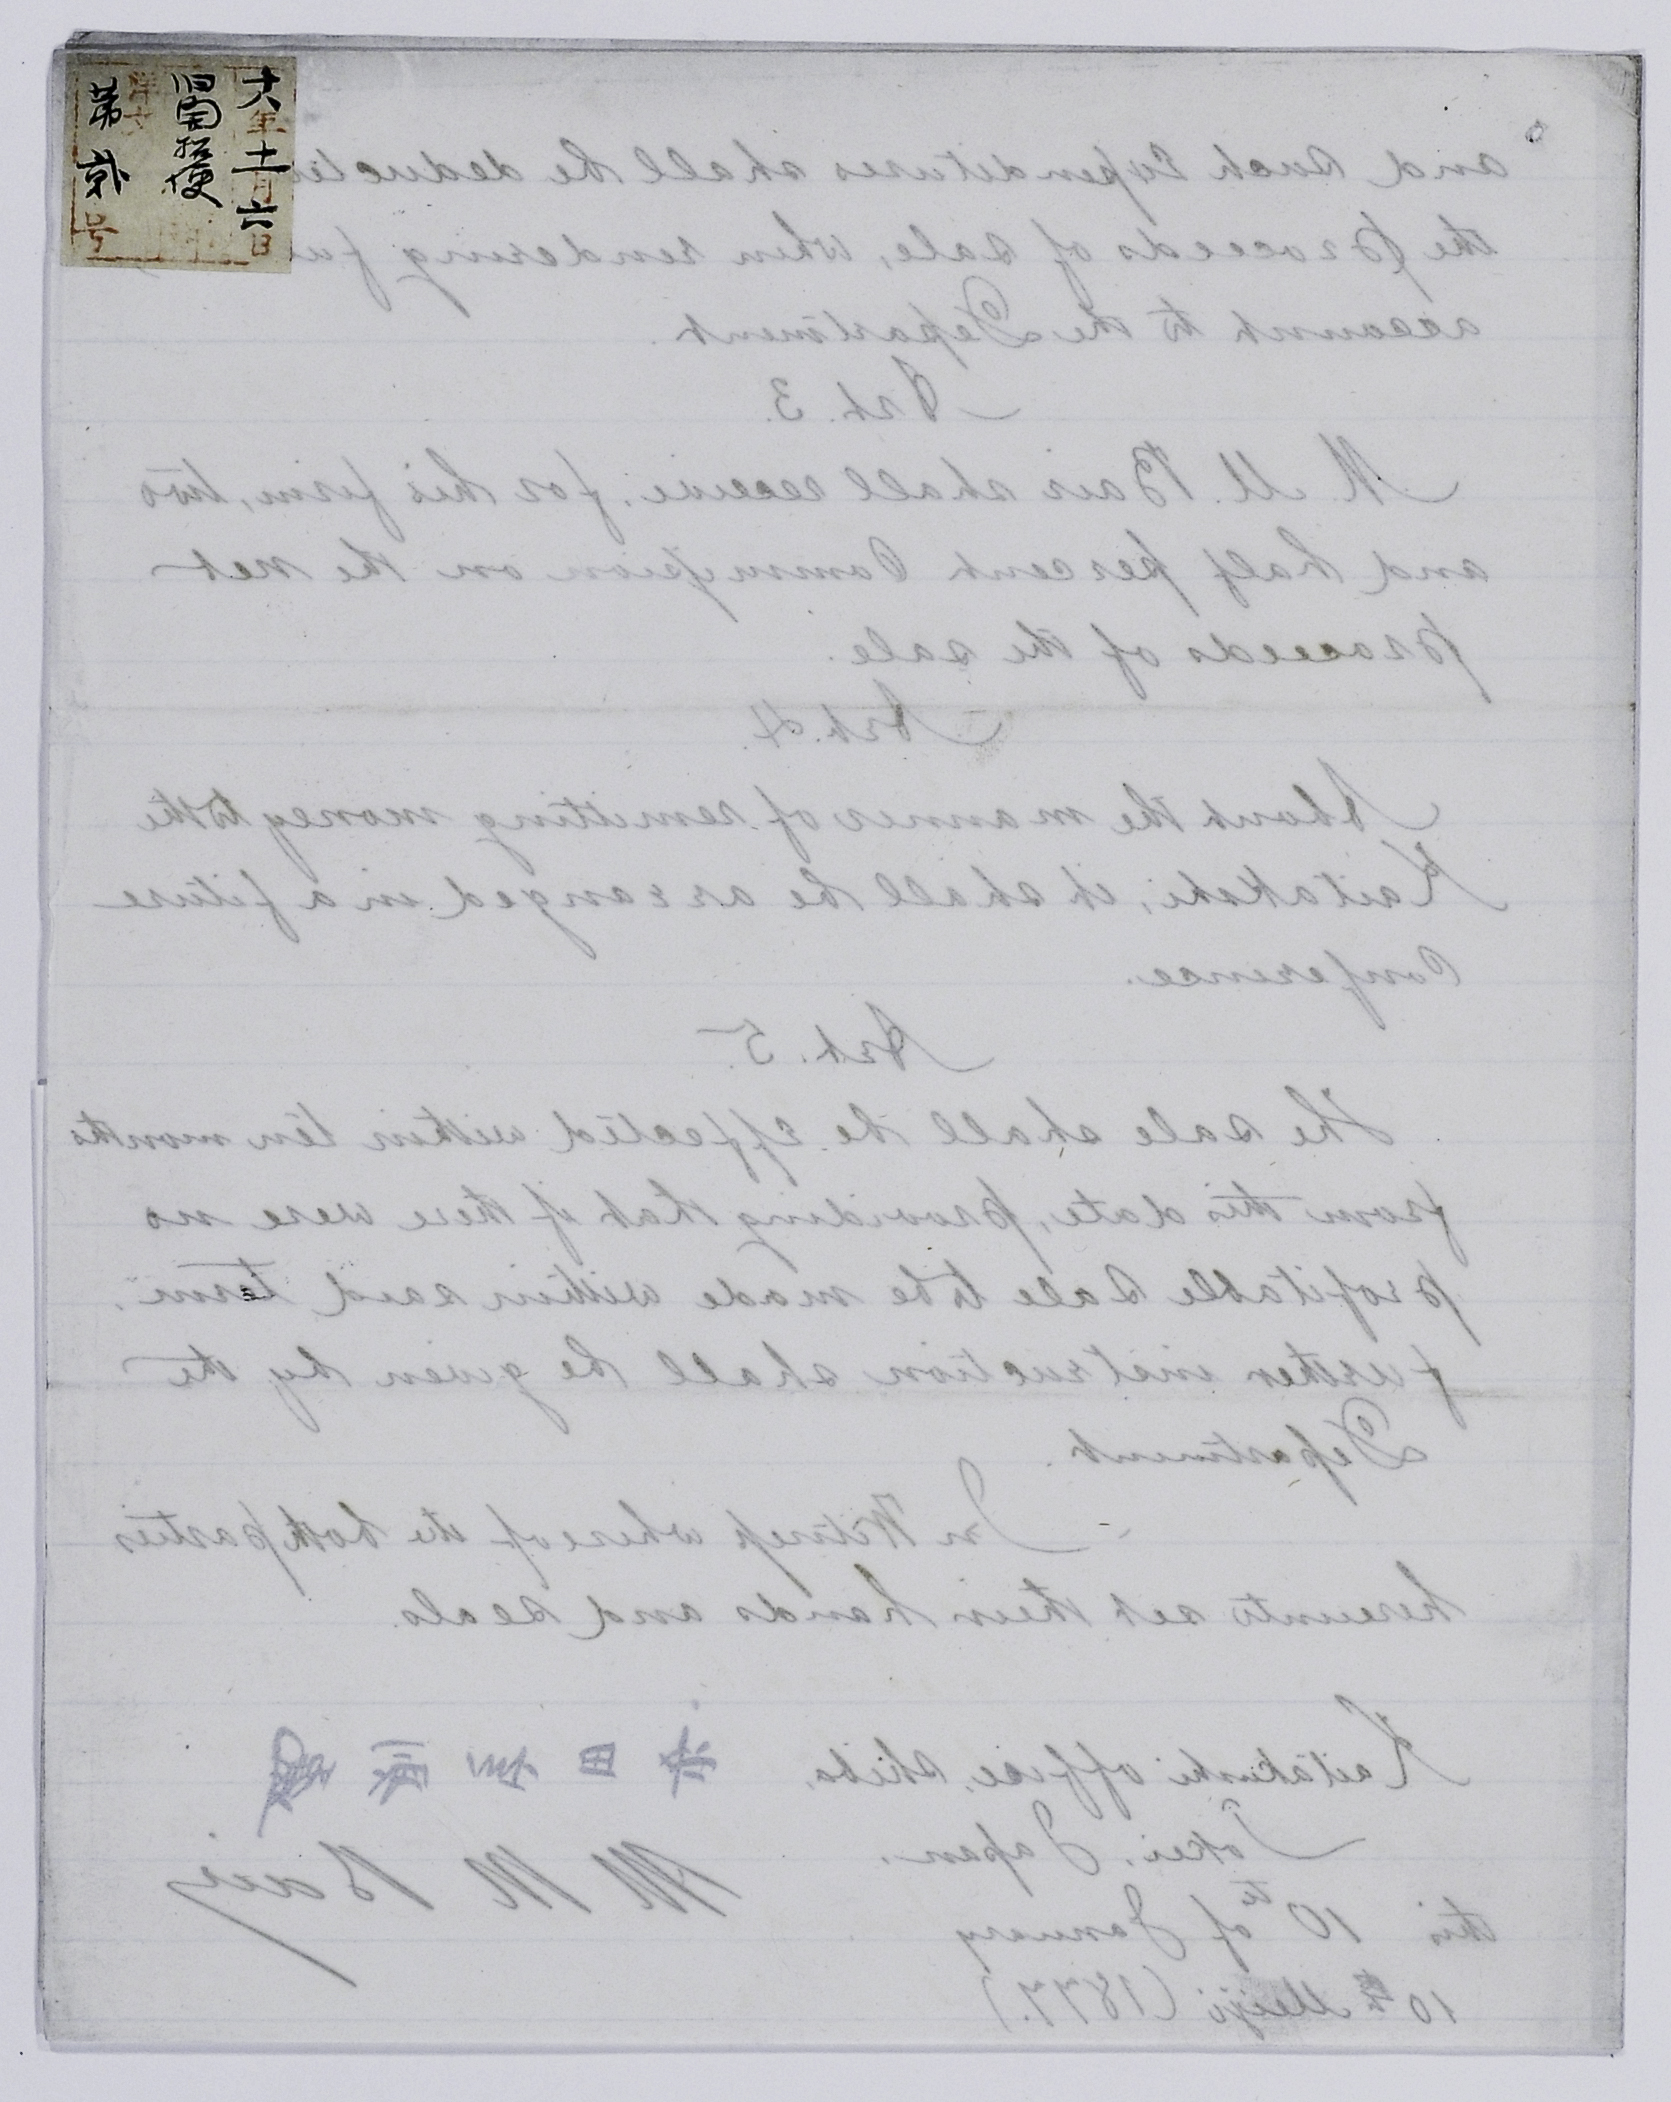 十六年十一月六日
旧開拓使
洋文
第 号
and such Expenditures shall be deducted
the proceeds of sale, when rendering
account to the Department.
Art. 3.
M. M. Bair shall receive, for his firm, two
and half percent Commission on the net
proceeds of the sale.
Art. 4.
About the manner of remitting money to the
Kaitakshi, it shall be arranged in a future
Conference.
Art. 5.
The sale shall be effected within ten months
from this date, providing that if there were no
profitable sale to be made within said term,
further instruction shall be given by the
Department.
In Witness whereof the both parties
hereunto set their hands and seals.
Kaitakushi office, Shiba,
Tokei, Japan.
M M Bair
this 10th of January
10th Meiji (1877.)